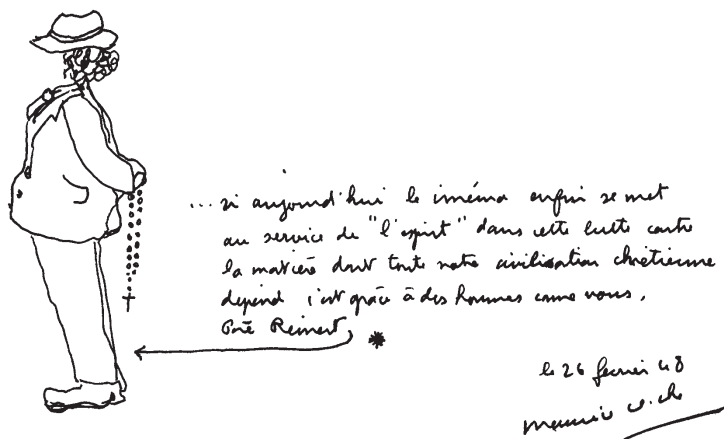 ... si aujourd'hui le cinéma enfin se met
au service de "l'esprit" dans cette lutte contre
la matière dont toute notre civilisation chrétienne
dépend c'est grâce à des hommes comme vous,
Reinert *
le 26 février 48